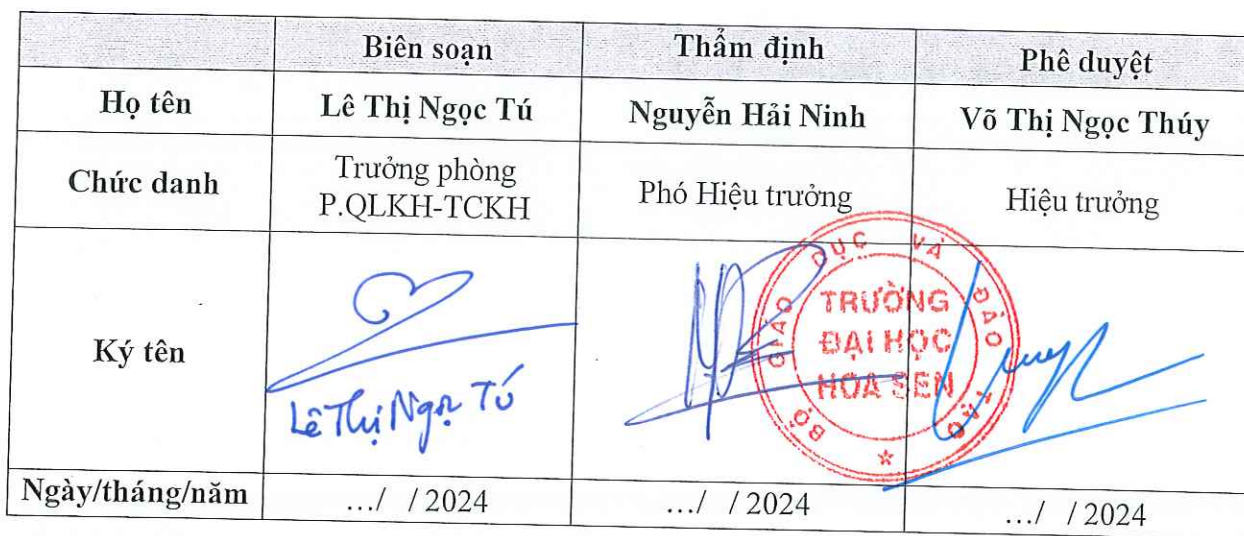 Biên soạn Thẩm định Phê duyệt
Họ tên Lê Thị Ngọc Tú Nguyễn Hải Ninh Võ Thị Ngọc Thúy
Chức danh Trưởng phòng P.QLKH-TCKH Phó Hiệu trưởng Hiệu trưởng
Ký tên
Lê Thị Ngọc Tú
BỘ GIÁO DỤC VÀ ĐÀO TẠO
TRƯỜNG
ĐẠI HỌC
HOA SEN
Ngày/tháng/năm .../ / 2024 .../ / 2024 .../ / 2024